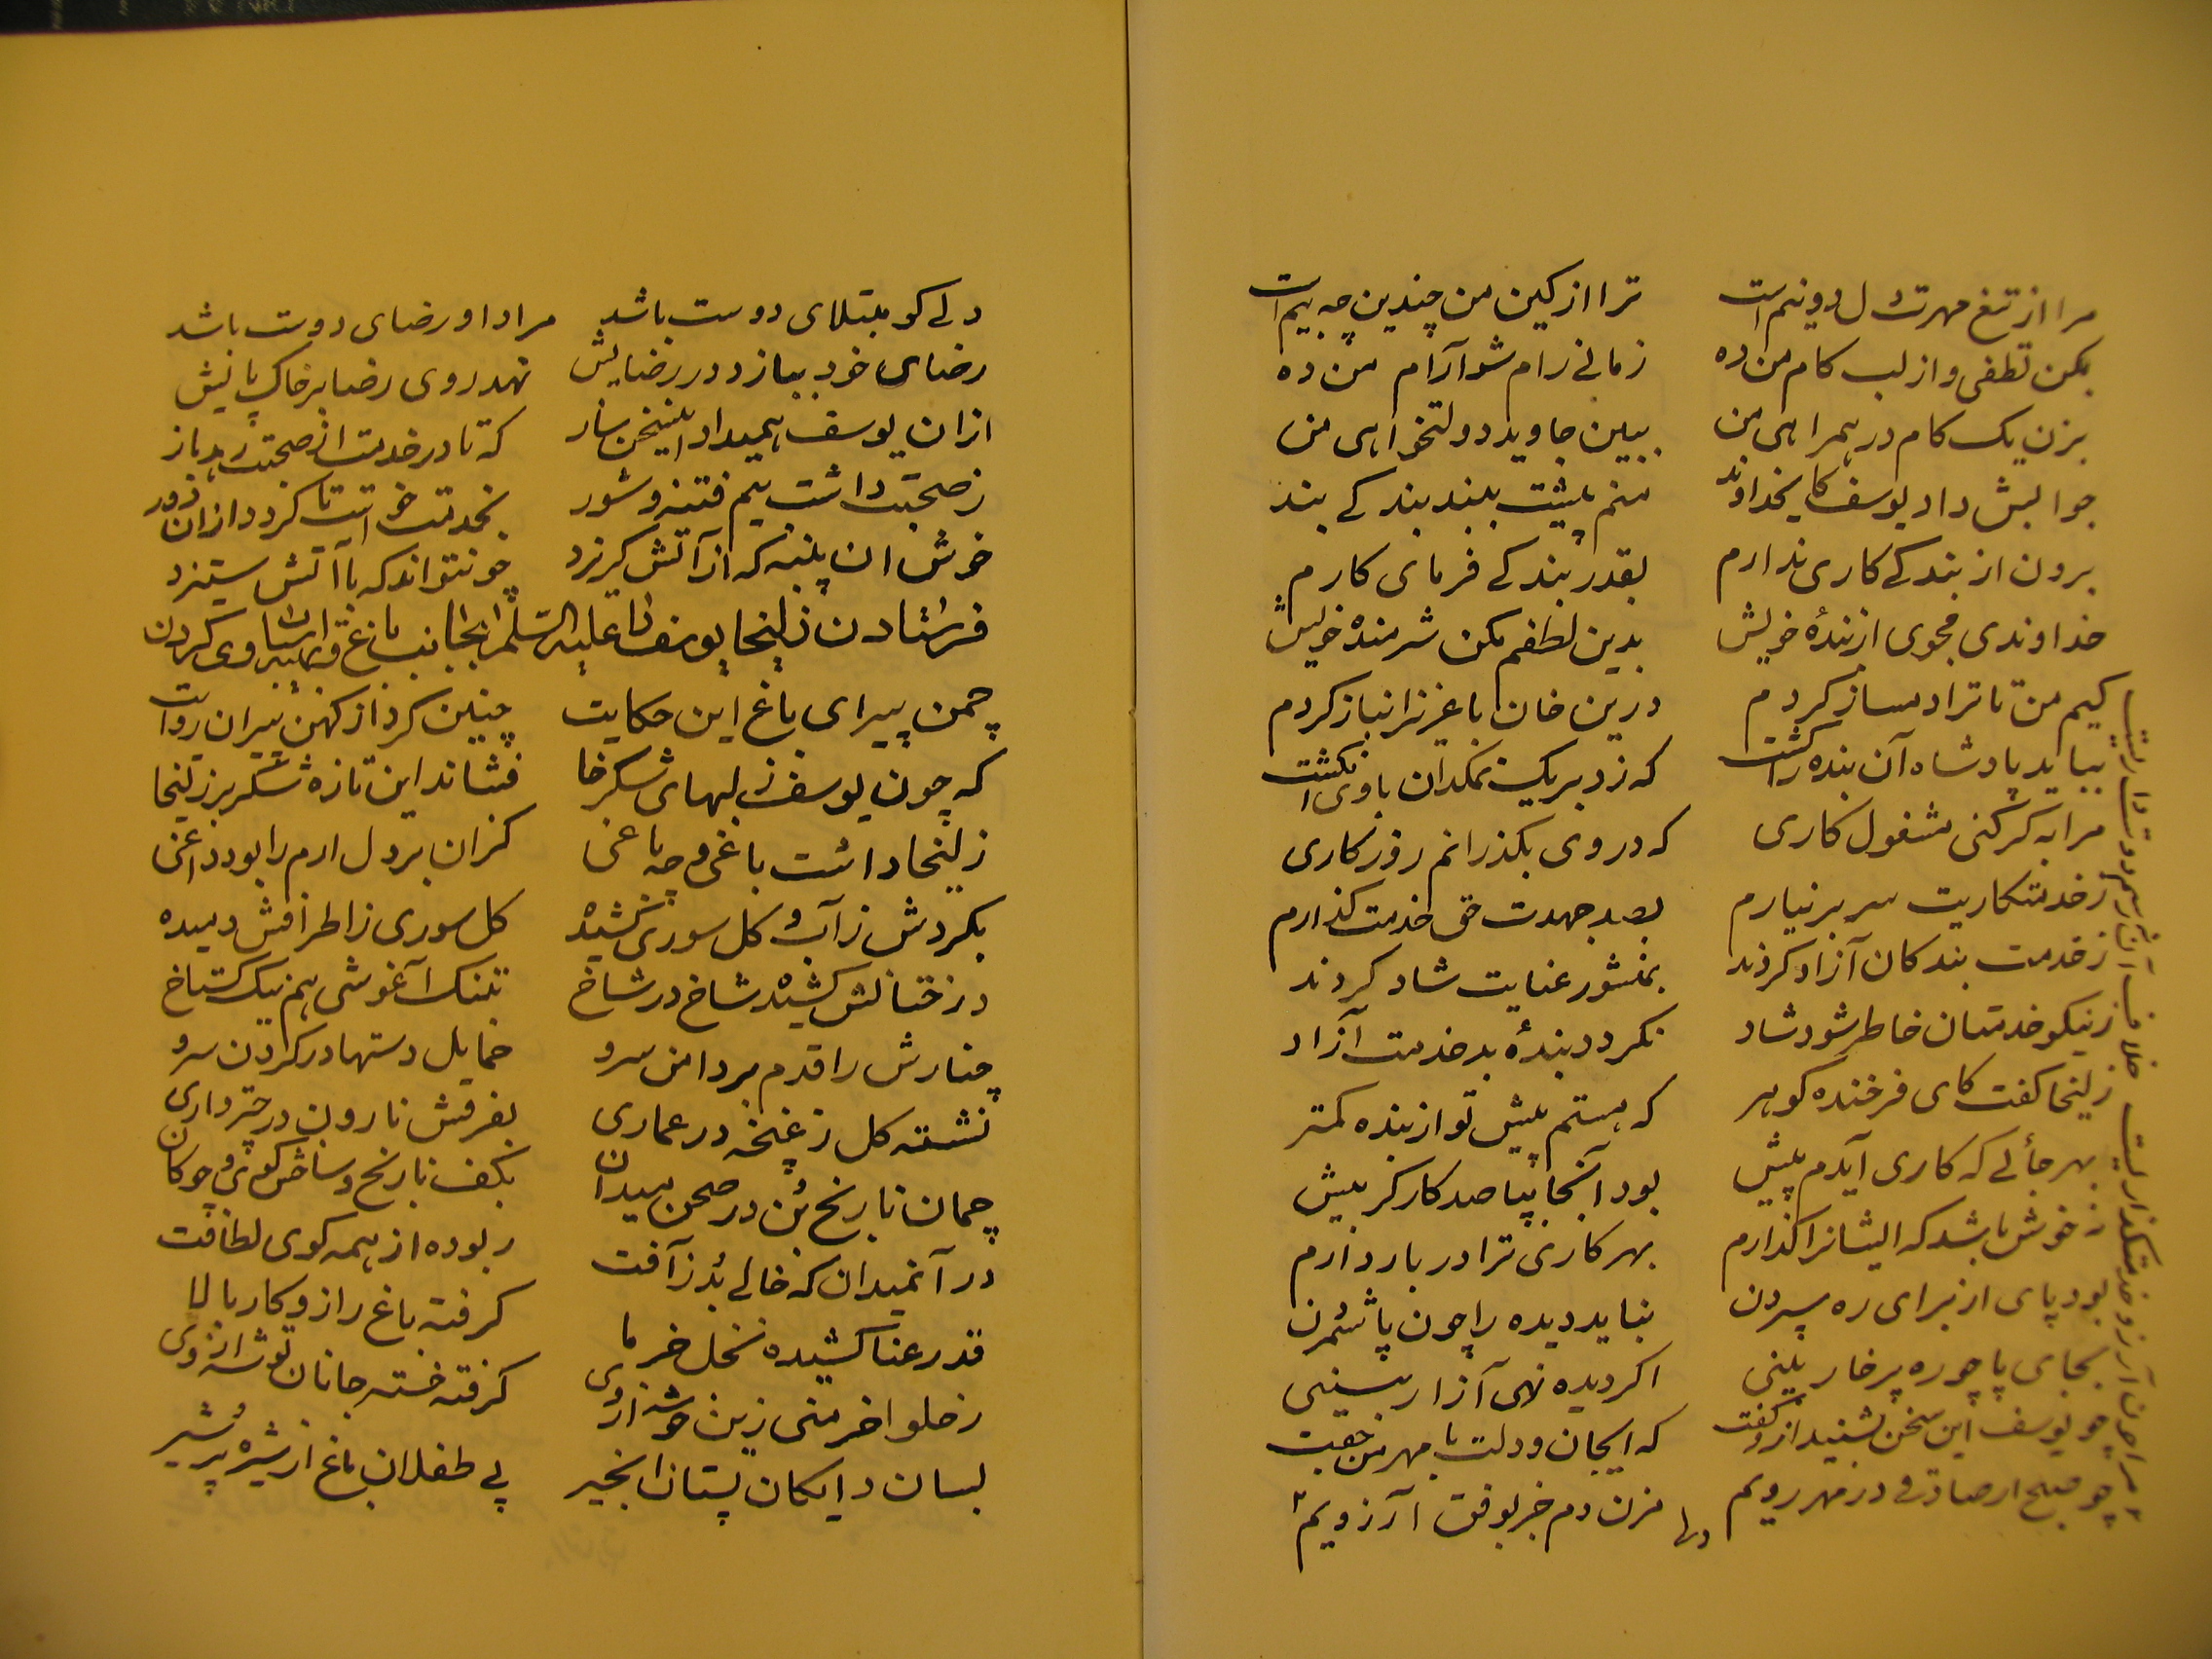 مرا از تیغ مهرت دل دونیم است ترا از کین من چندین چه بیم است
بکن لطفی و از لب کام من ده زمانے رام شو آرام من ده
بزن یک کام در همراهی من ببین جاوید دولتخواهی من
جوابش داد یوسف کای خداوند منم پیشت ببند بندکے بند
برون از بندکے کاری ندارم بقدر بندکے فرمای کارم
خداوندی مجوی از بندهٔ خویش بدین لطفم مکن شرمندهٔ خویش
کیم من تا ترا دمساز کردم درین خان با عزیز انباز کردم
بباید پادشاه آن بنده را کشت که زد بر یک نمکدان با وی انکشت
مرا به کر کنی مشغول کاری که در وی بکذرانم روزکاری
ز خدمتکاریت سر بر نیارم بصد جهدت حق خدمت کذارم
ز خدمت بندکان آزاد کردند بمنشور عنایت شاد کردند
ز نیکو خدمتان خاطر شود شاد نکردد بندهٔ بد خدمت آزاد
زلیخا کفت کای فرخنده کوهر که هستم پیش تو از بنده کمتر
بهر جائے که کاری آیدم پیش بود آنجا بپا صد کارکر بیش
نه خوش باشد که ایشانرا کذارم بهر کاری ترا در بار دارم
بود پای از برای ره سپردن نباید دیده را چون پا شمردن
بجای پا چو ره پر خار بینی اکر دیده نهی آزار بینی
چو یوسف این سخن بشنید ازو کفت که ایجان و دلت با مهر من جفت
چو صبح ار صادقے در مهر رویم مزن دم جز بوفق آرزویم
مرا چون آرزو خدمتکذاریست خلاف آن نه رسم دوستداریست
دلے کو مبتلای دوست باشد مراد او رضای دوست باشد
رضای خود ببازد در رضایش نهد روی رضا بر خاک پایش
ازان یوسف همیداد اینسخن ساز که تا در خدمت از صحبت رهد باز
ز صحبت داشت بیم فتنه و شور بخدمت خواست تا کردد ازان دور
خوش ان پنبه که از آتش کریزد چو نتواند که با آتش ستیزد
فرستادن زلیخا یوسف را علیه السلام بجانب باغ و اسباب وی کردن
چمن پیرای باغ این حکایت چنین کرد از کهن پیران روایت
که چون یوسف ز لبهای شکرخا فشاند این تازه شکر بر زلیخا
زلیخا داشت باغی و چه باغی کزان بر دل ارم را بود داغی
بکردش ز آب و کل سوری کشیده کل سوری ز اطرافش دمیده
درختانش کشیده شاخ در شاخ بتنک آغوشی هم نیک کستاخ
چنارش را قدم بر دامن سرو حمایل دستها در کردن سرو
نشسته کل ز غنچه در عماری بفرقش نارون در چترداری
چمان نارنج بن در صحن میدان بکف نارنج و شاخش کوی و چوکان
در آنمیدان که خالے بد ز آفت ربوده از همه کوی لطافت
قد رعنا کشیده نخل خرما کرفته باغ را زو کار بالا
ز حلوا خرمنی زین خوشه از وی کرفته خسته جانان توشه از وی
بسان دایکان پستان انجیر پے طفلان باغ از شیره پر شیر